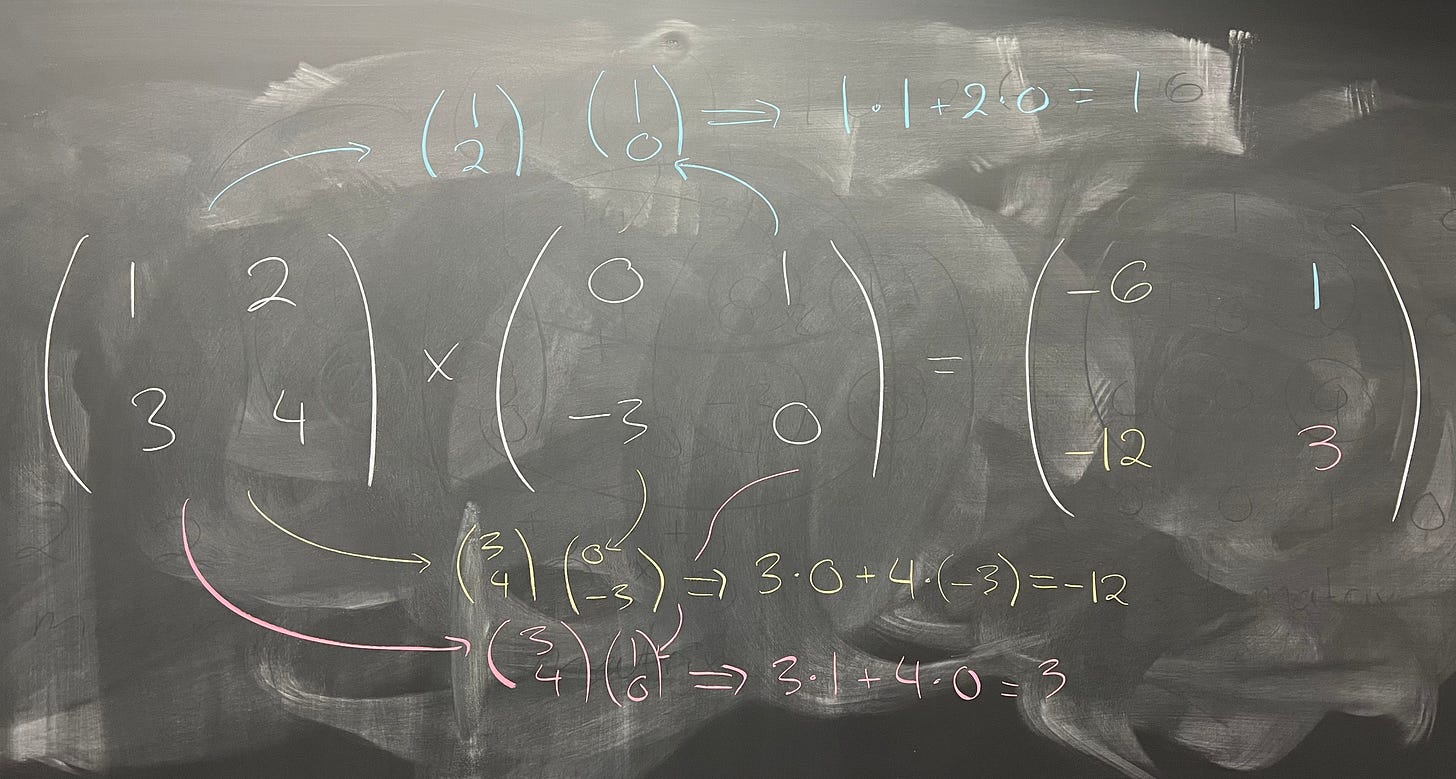 (1 2) (1 0) ⇒ 1·1+2·0=1
(1 2 3 4) × (0 1 -3 0) = (-6 1 -12 3)
(3 4) (0 -3) ⇒ 3·0+4·(-3)=-12
(3 4) (1 0) ⇒ 3·1+4·0=3